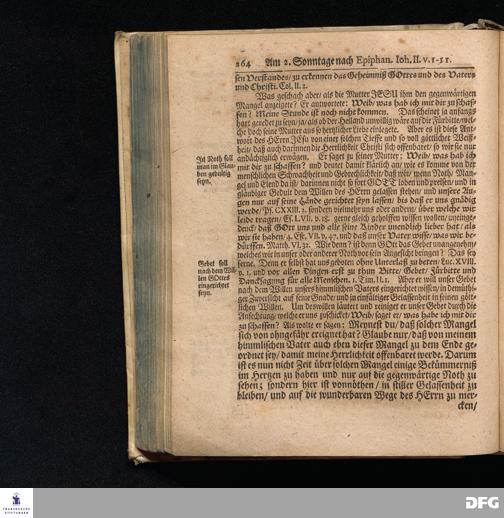 264 Am 2. Sonntage nach Epiphan. Ioh. II. v. 1-11.
sen Verstandes/ zu erkennen das Geheimniß GOttes und des Vaters
und Christi. Col. II. 2.
Was geschach aber/ als die Mutter JESU ihm den gegenwärtigen
Mangel anzeigete? Er antwortete: Weib/ was hab ich mit dir zu schaf-
fen? Meine Stunde ist noch nicht kommen. Das scheinet ja anfangs
hart geredet zu seyn/ ja/ als ob der Heiland unwillig wäre auf die Fürbitte/ wel-
che doch seine Mutter aus so hertzlicher Liebe einlegete. Aber es ist diese Ant-
wort des HErrn JEsu von einer solchen Tieffe und so voll göttlicher Weiß-
heit/ daß auch darinnen die Herrlichkeit Christi sich offenbaret/ so wir sie nur
andächtiglich erwägen. Er saget zu seiner Mutter: Weib/ was hab ich
mit dir zu schaffen? und deutet damit klärlich an/ wie es komme von der
menschlichen Schwachheit und Gebrechlichkeit/ daß wir/ wenn Noth/ Man-
gel und Elend da ist/ darinnen nicht so fort GOTT loben und preisen/ und in
gläubiger Gedult dem Willen des HErrn gelassen stehen/ und unsere Au-
gen nur auf seine Hände gerichtet seyn lassen/ biß daß er uns gnädig
werde/ Ps. CXXIII. 2. sondern vielmehr uns oder andern/ über welche wir
leide tragen/ Es. LVII. v. 18. gerne gleich geholffen wissen wollen/ uneinge-
denck/ daß GOtt uns und alle seine Kinder unendlich lieber hat/ als
wir sie haben/ 4. Esr. VII. v. 47. und daß unser Vater wisse/ was wir be-
dürffen. Matth. VI. 32. Wie denn? ist denn GOtt das Gebet unangenehm/
welches wir in unser oder anderer Noth vor sein Angesicht bringen? Das sey
ferne. Denn er selbst hat uns geboten ohne Unterlaß zu beten: Luc. XVIII.
v. 1. und vor allen Dingen erst zu thun Bitte/ Gebet/ Fürbitte und
Dancksagung für alle Menschen. 1. Tim. II. 1. Aber er will unser Gebet
nach dem Willen unsers himmlischen Vaters eingerichtet wissen/ in demüthi-
ger Zuversicht auf seine Gnade/ und in einfältiger Gelassenheit in seinen gött-
lichen Willen. Um deswillen läutert und reiniget er unser Gebet durch die
Anfechtung/ welche er uns zuschicket/ Weib/ saget er/ was habe ich mit dir
zu schaffen? Als wolte er sagen: Meynest du/ daß solcher Mangel
sich von ohngefähr ereignet hat? Glaube nur/ daß von meinem
himmlischen Vater auch eben dieser Mangel zu dem Ende ge-
ordnet sey/ damit meine Herrlichkeit offenbaret werde. Darum
ist es nun nicht Zeit über solchen Mangel einige Bekümmerniß
im Hertzen zu haben und nur auf die gegenwärtige Noth zu
sehen; sondern hier ist vonnöthen/ in stiller Gelassenheit zu
bleiben/ und auf die wunderbaren Wege des HErrn zu mer-
cken/
In Noth soll
man im Glau-
ben gedultig
seyn.
Gebet soll
nach dem Wil-
len GOttes
eingerichtet
seyn.
FRANCKESCHE
STIFTUNGEN
DFG